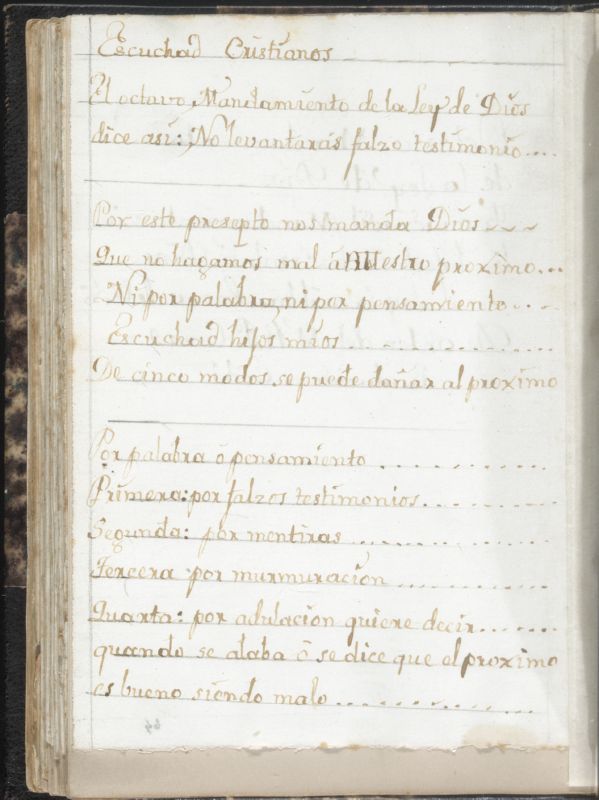 Escuchad Cristianos
El octavo Mandamiento de la Ley de Dios
dice asi: No levantarás falzo testimonio....
Por este presepto nos manda Dios ~ ~ ~
Que no hagamos mal á nuestro proximo...
Ni por palabra, ni por pensamiento . . -
Escuchad hijos mios. . . . . . . . . . . .
De cinco modos se puede dañar al proximo
Por palabra ó pensamiento . . . . . . . . . . .
Primera: por falzos testimonios. . . . . . . .
Segunda: por mentiras . . . . . . . . . . . . .
Tercera por murmuración . . . . . . . . . .
Quarta: por adulacion quiere decir. . . . . .
quando se alaba ó se dice que el proximo
es bueno siendo malo . . . . . . . . . . . .